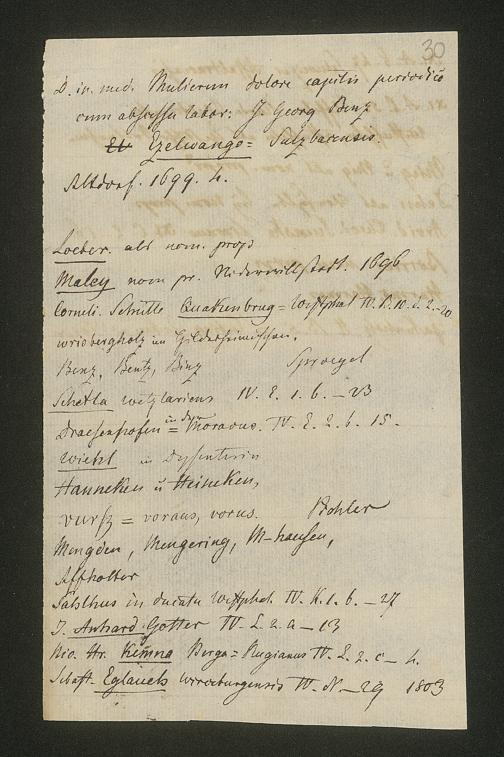 30
D. in. med. Mulierum dolore capitis periodico
cum abscessu labor: J. Georg Benz
Ezelwango= Sulzbacensis.
Altdorf. 1699. 4.
Loeber. als nom. prop
Maley nom pr. 1696
Corneli. Schütte Quakenbrug= Westphal IV. K. 10. 2. 2.-20
wridbergholz im Hildesheimischen.
Benz, Bentz, Binz Sproegel
Schetla wetzlariens IV. E. 1. 6. - 23
Draesenhofen = in dem Moravus. IV. E. 2. 6. 15.
Wiehl in Dysenteria
Hanneken u Heineken,
vurß = voraus, vorus. Pohler
Mengden, Mengering, M-hausen,
Affholter
Salthus in ducatu Westphal. IV. K. 1. 6. - 27
J. Anhard Gotter IV. L. 2. a - 13
Nio. Hr. Kemna Berga= Rugianus IV. L. 2. c - 4.
Schaft. Eglauch Wirceburgensis IV. N - 29 1803